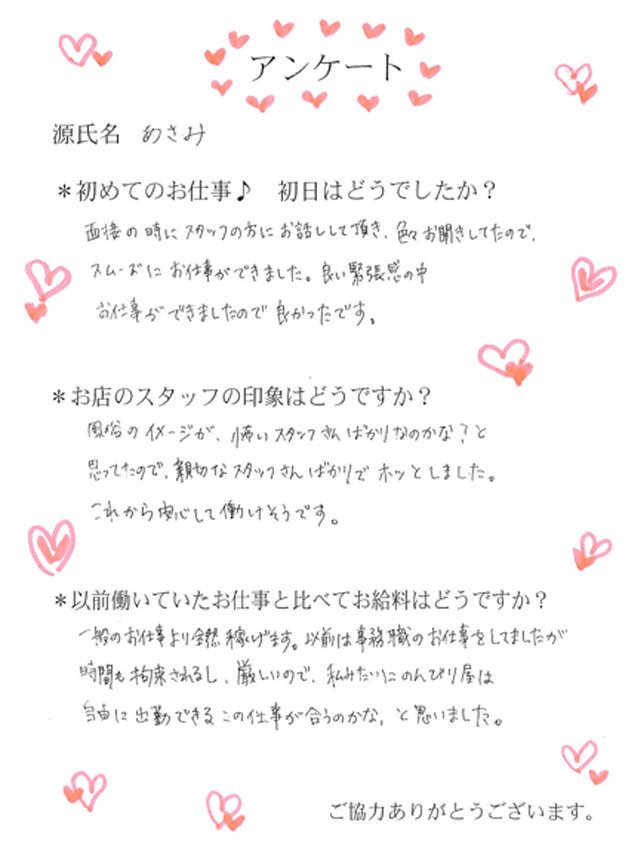 アンケート
源氏名 あさみ
＊初めてのお仕事♪ 初日はどうでしたか？
面接の時にスタッフの方にお話しして頂き、色々お聞きしてたので、
スムーズにお仕事ができました。良い緊張感の中
お仕事ができましたので良かったです。
＊お店のスタッフの印象はどうですか？
風俗のイメージが、怖いスタッフさんばかりなのかな？と
思ってたので、親切なスタッフさんばかりでホッとしました。
これから安心して働けそうです。
＊以前働いていたお仕事と比べてお給料はどうですか？
一般のお仕事より全然稼げます。以前は事務職のお仕事をしてましたが
時間も拘束されるし、厳しいので、私みたいにのんびり屋は
自由に出勤できるこの仕事が合うのかな、と思いました。
ご協力ありがとうございます。